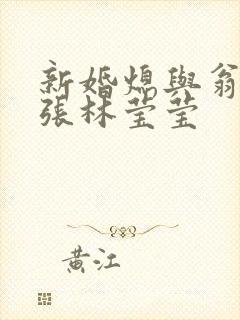 新婚熄與翁
張林莹莹
黄江